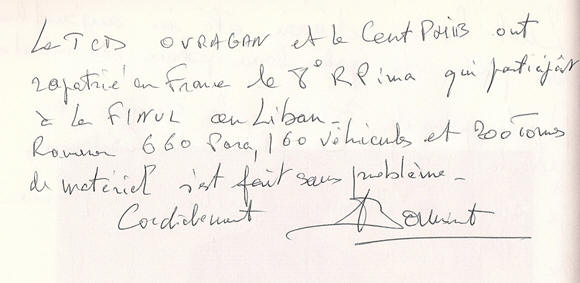 Le TCD OURAGAN et le Cent Points ont
rapatrié en France le 8° RPima qui participait
à la FINUL au Liban -
660 Para, 160 véhicules et 200 tonnes
de matériel s'est fait sans problème -
Cordialement